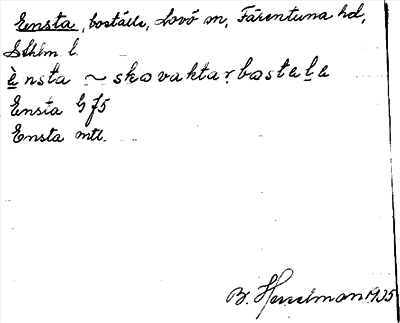 Ensta, boställe, Lovö sn, Färentuna hd,
Sthlm l.
ènsta ~ skovaktarbostela
Ensta Gf5
Ensta mtl.
B. Hesselman 1935